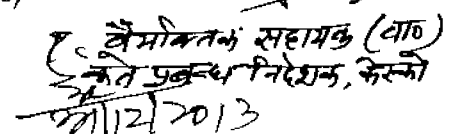 वैयक्तिक सहायक (वाo)
कृते प्रबन्ध निदेशक, केस्को
12/2013